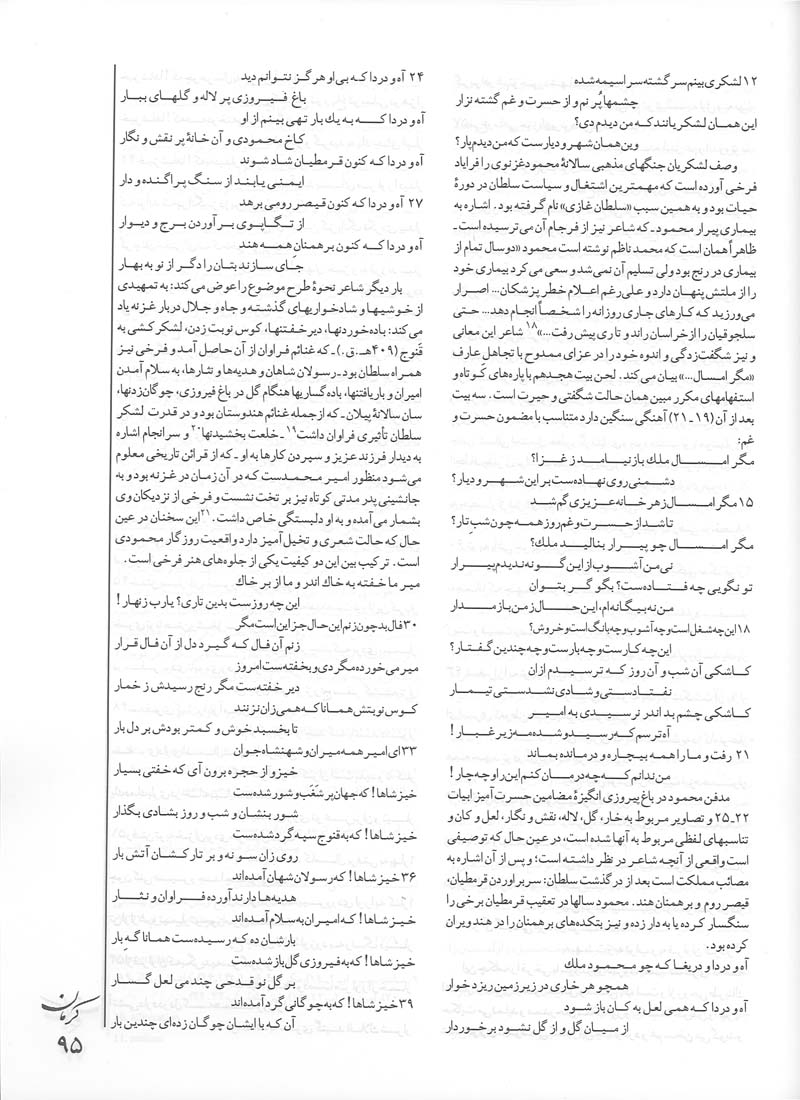 ۱۲ لشکری بینم سرگشته سراسیمه شده
چشمها پُر نم و از حسرت و غم گشته نزار
این همان لشکریانند که من دیدم دی؟
وین همان شهر و دیارست که من دیدم بار؟
وصف لشکریان جنگهای مذهبی سالانهٔ محمود غزنوی را فرایاد
فرخی آورده است که مهمترین اشتغال و سیاست سلطان در دورهٔ
حیات بود و به همین سبب «سلطان غازی» نام گرفته بود. اشاره به
بیماری پیرار محمود ـ که شاعر نیز از فرجام آن می‌ترسیده است ـ
ظاهراً همان است که محمد ناظم نوشته است محمود «دو سال تمام از
بیماری در رنج بود ولی تسلیم آن نمی‌شد و سعی می‌کرد بیماری خود
را از ملتش پنهان دارد و علی‌رغم اعلام خطر پزشکان... اصرار
می‌ورزید که کارهای جاری روزانه را شخصاً انجام دهد... حتی
سلجوقیان را از خراسان راند و تاری پیش رفت...»۱۸ شاعر این معانی
و نیز شگفت‌زدگی و اندوه خود را در عزای ممدوح با تجاهل عارف
«مگر امسال...» بیان می‌کند. لحن بیت هجدهم با پاره‌های کوتاه و
استفهامهای مکرر مبین همان حالت شگفتی و حیرت است. سه بیت
بعد از آن (۱۹ـ۲۱) آهنگی سنگین دارد متناسب با مضمون حسرت و
غم:
مگر امسال ملك باز نیامد ز غزا؟
دشمنی روی نهاده‌ست بر این شهر و دیار؟
۱۵ مگر امسال ز هر خانه عزیزی گم شد
تا شد از حسرت و غم روز همه چون شبِ تار؟
مگر امسال چو پیرار بنالید ملك؟
نی من آشوب از این گونه ندیدم پیرار
تو نگویی چه فتاده‌ست؟ بگو گر بتوان
من نه بیگانه‌ام، این حال ز من باز مدار
۱۸ این چه شغل است و چه آشوب و چه بانگ است و خروش؟
این چه کارست و چه بارست و چه چندین گفتار؟
کاشکی آن شب و آن روز که ترسیدم ازان
نفتادستی و شادی نشدستی تیمار
کاشکی چشم بد اندر نرسیدی به امیر
آه ترسم که رسید و شده مه زیر غبار!
۲۱ رفت و ما را همه بیچاره و درمانده بماند
من ندانم که چه درمان کنم این را و چه چار!
مدفن محمود در باغ پیروزی انگیزهٔ مضامین حسرت‌آمیز ابیات
۲۲ـ۲۵ و تصاویر مربوط به خار، گل، لاله، نقش و نگار، لعل و کان و
تناسبهای لفظی مربوط به آنها شده است، در عین حال که توصیفی
است واقعی از آنچه شاعر در نظر داشته است؛ و پس از آن اشاره به
مصائب مملکت است بعد از درگذشت سلطان: سر برآوردن قرمطیان،
قیصر روم و برهمنان هند. محمود سالها در تعقیب قرمطیان برخی را
سنگسار کرده یا به دار زده و نیز بتکده‌های برهمنان را در هند ویران
کرده بود.
آه و دردا و دریغا که چو محمود ملك
همچو هر خاری در زیر زمین ریزد خوار
آه و دردا که همی لعل به کان باز شود
از میان گل و از گل نشود برخوردار
۲۴ آه و دردا که بی او هرگز نتوانم دید
باغ فیروزی پر لاله و گلهای ببار
آه و دردا که به یك بار تهی بینم از او
کاخ محمودی و آن خانهٔ پر نقش و نگار
آه و دردا که کنون قرمطیان شاد شوند
ایمنی یابند از سنگ پراگنده و دار
۲۷ آه و دردا که کنون قیصر رومی برهد
از تگاپوی برآوردن برج و دیوار
آه و دردا که کنون برهمنان همه هند
جای سازند بتان را دگر از نو به بهار
بار دیگر شاعر نحوهٔ طرح موضوع را عوض می‌کند: به تمهیدی
از خوشیها و شادخواریهای گذشته و جاه و جلال دربار غزنه یاد
می‌کند: باده‌خوردنها، دیر خفتنها، کوس نوبت زدن، لشکرکشی به
قَنوج (۴۰۹ هـ.ق.) ـ که غنائم فراوان از آن حاصل آمد و فرخی نیز
همراه سلطان بود ـ رسولان شاهان و هدیه‌ها و نثارها، به سلام آمدن
امیران و بار یافتنها، باده‌گساریها هنگام گل در باغ فیروزی، چوگان‌زدنها،
سان سالانهٔ پیلان ـ که از جمله غنائم هندوستان بود و در قدرت لشکر
سلطان تأثیری فراوان داشت۱۹ ـ خلعت بخشیدنها۲۰ و سرانجام اشاره
به دیدار فرزند عزیز و سپردن کارها به او ـ که از قرائن تاریخی معلوم
می‌شود منظور امیر محمدست که در آن زمان در غزنه بود و به
جانشینی پدر مدتی کوتاه نیز بر تخت نشست و فرخی از نزدیکان وی
بشمار می‌آمده و به او دلبستگی خاص داشت.۲۱ این سخنان در عین
حال که حالت شعری و تخیل‌آمیز دارد واقعیت روزگار محمودی
است. ترکیب بین این دو کیفیت یکی از جلوه‌های هنر فرخی است.
میر ما خفته به خاك اندر و ما از بر خاك
این چه روزست بدین تاری؟ یارب زنهار!
۳۰ فال بد چون زنم این حال جز این است مگر
زنم آن فال که گیرد دل از آن فال قرار
میر می خورده مگر دی و بخفته‌ست امروز
دیر خفته‌ست مگر رنج رسیدش ز خمار
کوس نوبتش همانا که همی زان نزنند
تا بخسبد خوش و کمتر بودش بر دل بار
۳۳ ای امیر همه میران و شهنشاه جوان
خیز و از حجره برون آی که خفتی بسیار
خیز شاها! که جهان پر شَغَب و شور شده‌ست
شور بنشان و شب و روز بشادی بگذار
خیز شاها! که به قنوج سپه گرد شده‌ست
روی زان سو نه و بر تارکشان آتش بار
۳۶ خیز شاها! که رسولان شهان آمده‌اند
هدیه‌ها دارند آورده فراوان و نثار
خیز شاها! که امیران به سلام آمده‌اند
بارشان ده که رسیده‌ست همانا گهِ بار
خیز شاها! که به فیروزی گل باز شده‌ست
بر گل نو قدحی چند می لعل گسار
۳۹ خیز شاها! که به چوگانی گرد آمده‌اند
آن که با ایشان چوگان زده‌ای چندین بار
کرمان
۹۵